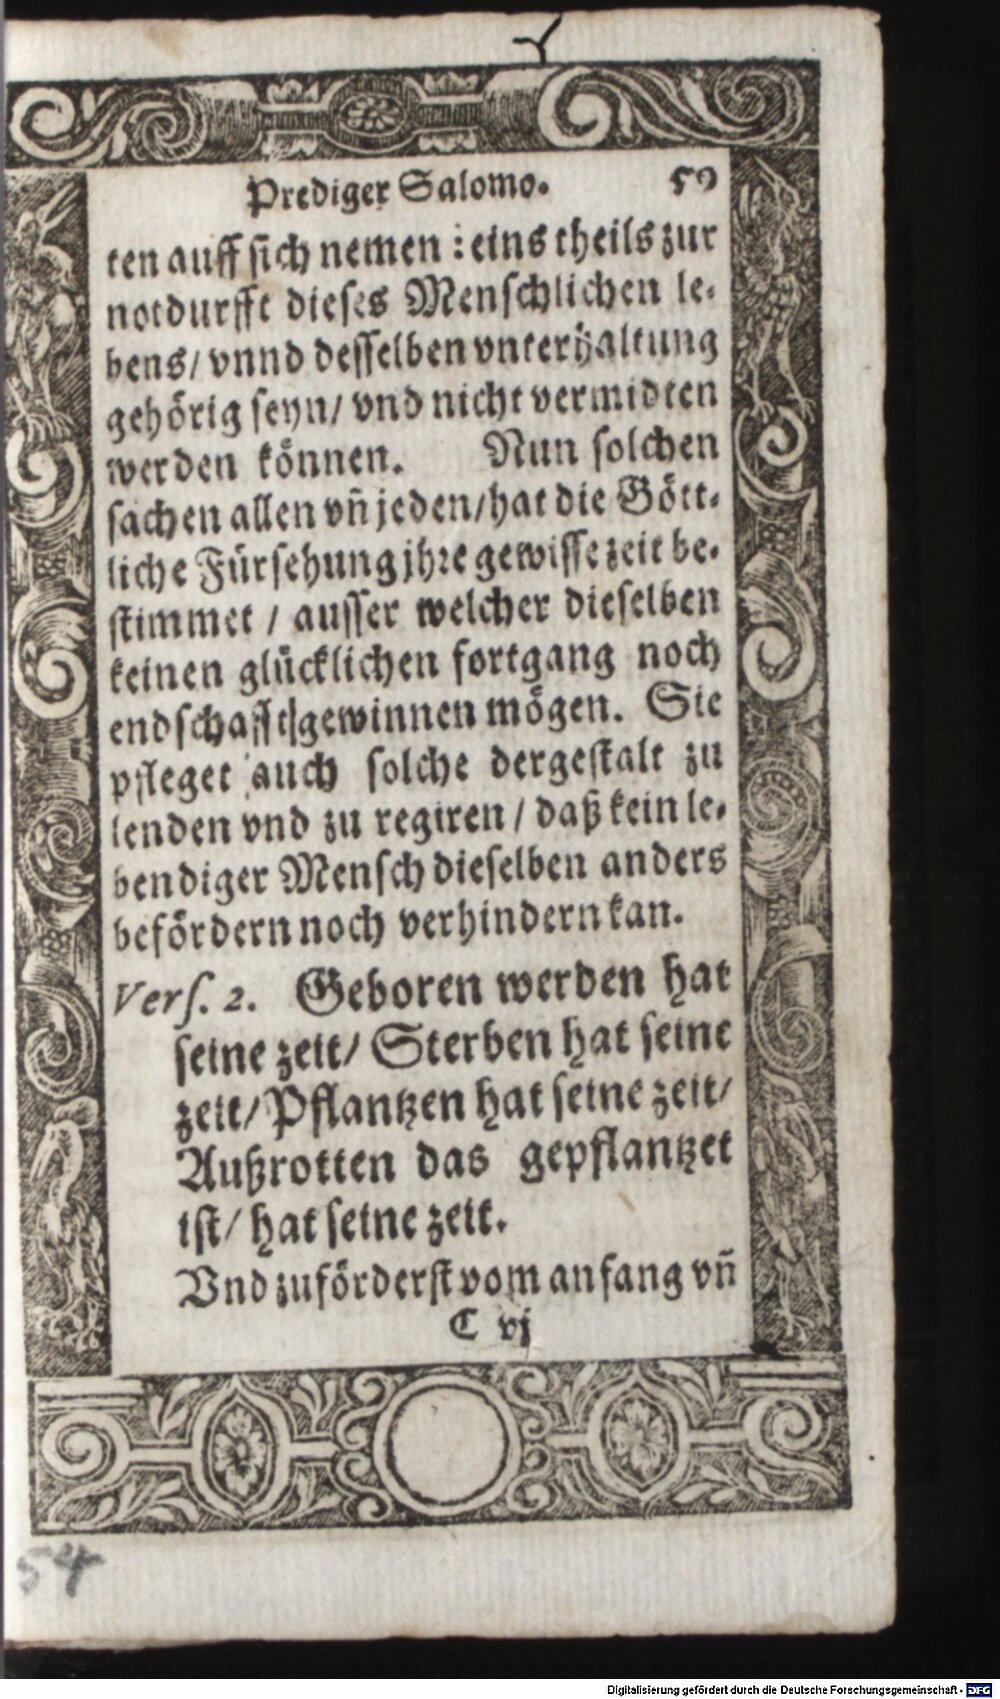 Prediger Salomo. 59
ten auff sich nemen : eins theils zur
notdurfft dieses Menschlichen le-
bens/ vnnd desselben vnterhaltung
gehörig seyn/ vnd nicht vermidten
werden können. Nun solchen
sachen allen vñ jeden/hat die Gött-
liche Fürsehung jhre gewisse zeit be-
stimmet / ausser welcher dieselben
keinen glücklichen fortgang noch
endschafft gewinnen mögen. Sie
pfleget auch solche dergestalt zu
lenden vnd zu regiren / daß kein le-
bendiger Mensch dieselben anders
befördern noch verhindern kan.
Vers. 2. Geboren werden hat
seine zeit/ Sterben hat seine
zeit/Pflantzen hat seine zeit/
Außrotten das gepflantzet
ist/ hat seine zeit.
Vnd zuförderst vom anfang vñ
C vj
54
Digitalisierung gefördert durch die Deutsche Forschungsgemeinschaft - DFG